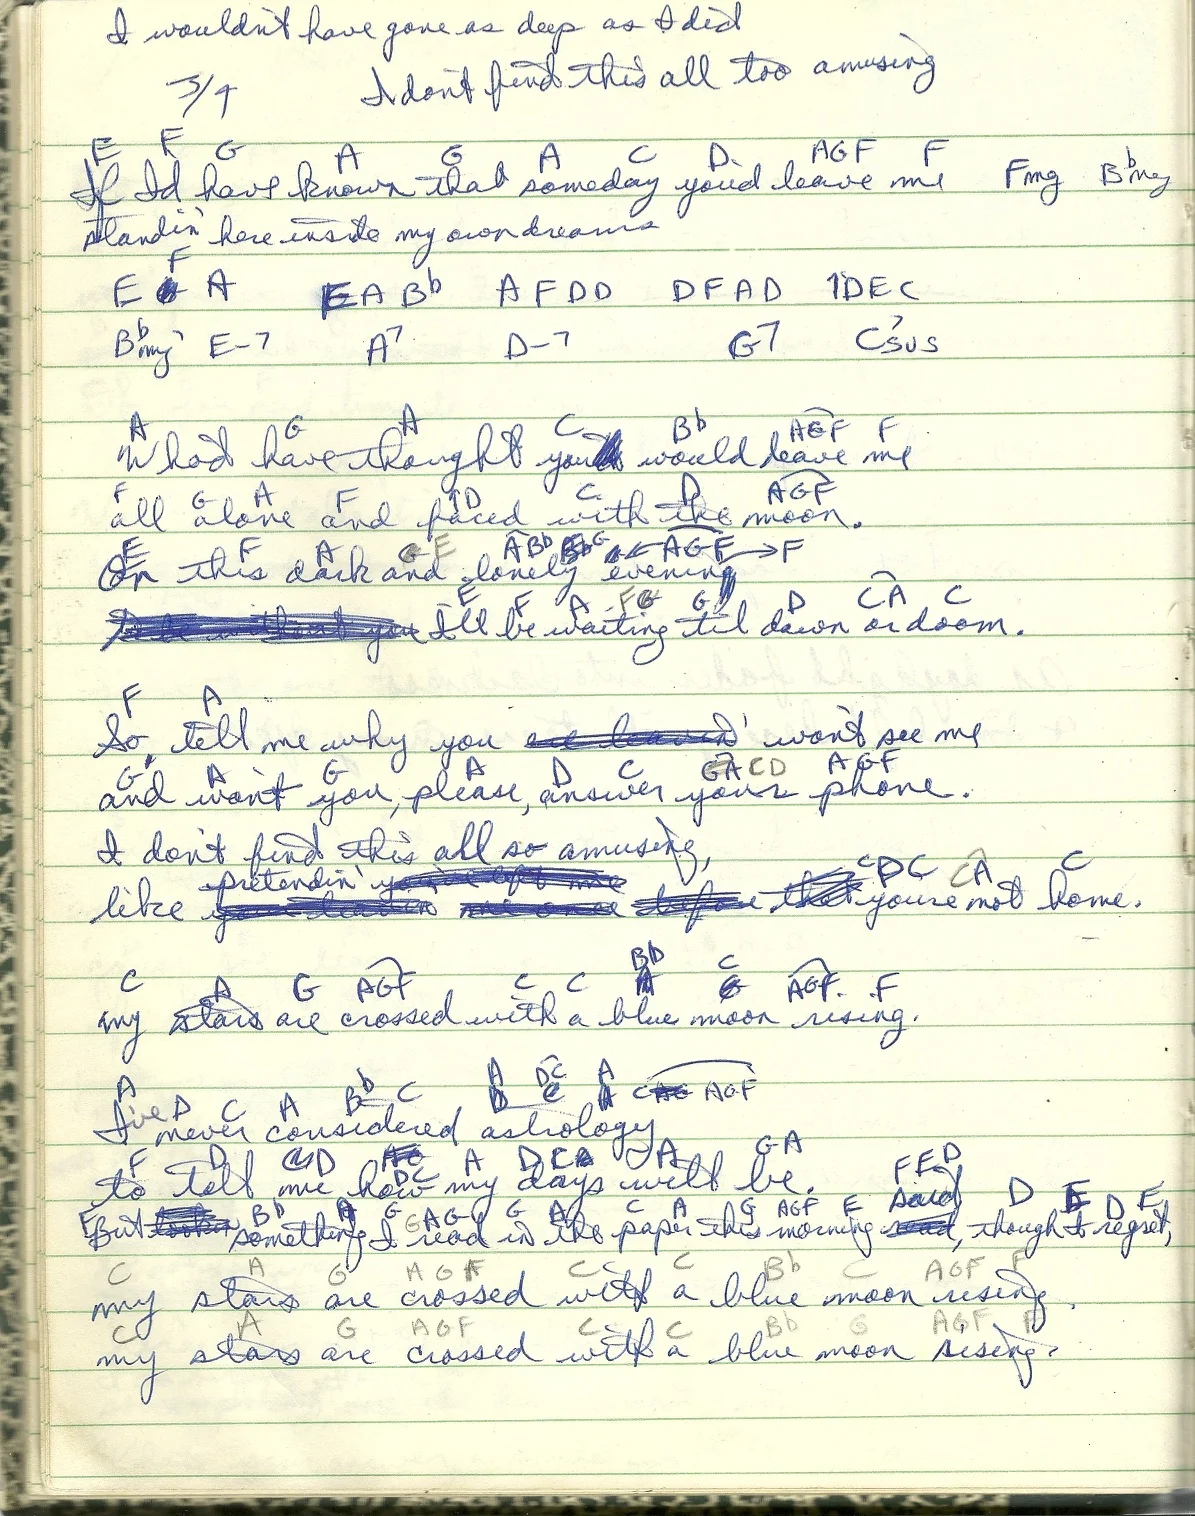 I wouldn't have gone as deep as I did
3/4 I don't find this all too amusing
E F G A G A C D AGF F
If I'd have known that someday you'd leave me Fmg Bbmg
standin' here inside my own dreams
F
E A EA Bb A F D D D F A D D E C
Bbmg E-7 A7 D-7 G7 C7sus
A G A C Bb AGF F
Who'd have thought you would leave me
F G A F D C D AGF
all alone and faced with the moon.
E F A G E A Bb G AGF F
On this dark and lonely evening
E F A F G G D CA C
I'll be waiting til dawn or doom.
F A
So, tell me why you won't see me
G A G A D C GA CD AGF
and won't you, please, answer your phone.
I don't find this all so amusing,
pretendin' C DC CA C
like you're not home.
Bb C
C A G AGF C C AGF F
my stars are crossed with a blue moon rising.
A DC A
A D C A Bb C C AGF
I've never considered astrology
F D D A D C A GA
to tell me how my days will be. F E D
DC said
Bb A G GAG G A C A G AGF E D E D E
But something I read in the paper this morning, though I regret,
C A G AGF C C Bb C AGF F
my stars are crossed with a blue moon rising,
C A G AGF C C Bb G AGF F
my stars are crossed with a blue moon rising.